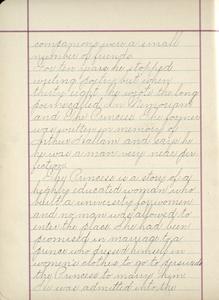 companions were a small
number of friends.
For ten years he stopped
writing poetry but when
thirty eight he wrote the long
poems called In Memoriam
and The Princess. The former
was written in memory of
Arthur Hallam and says he
he was a man very near per-
fection.
The Princess is a story of a
highly educated woman who
built a university for women
and no man was allowed to
enter the place. She had been
promised in marriage to a
prince who dressed himself in
women's clothes to go to persuade
the Princess to marry him.
He was admitted into the